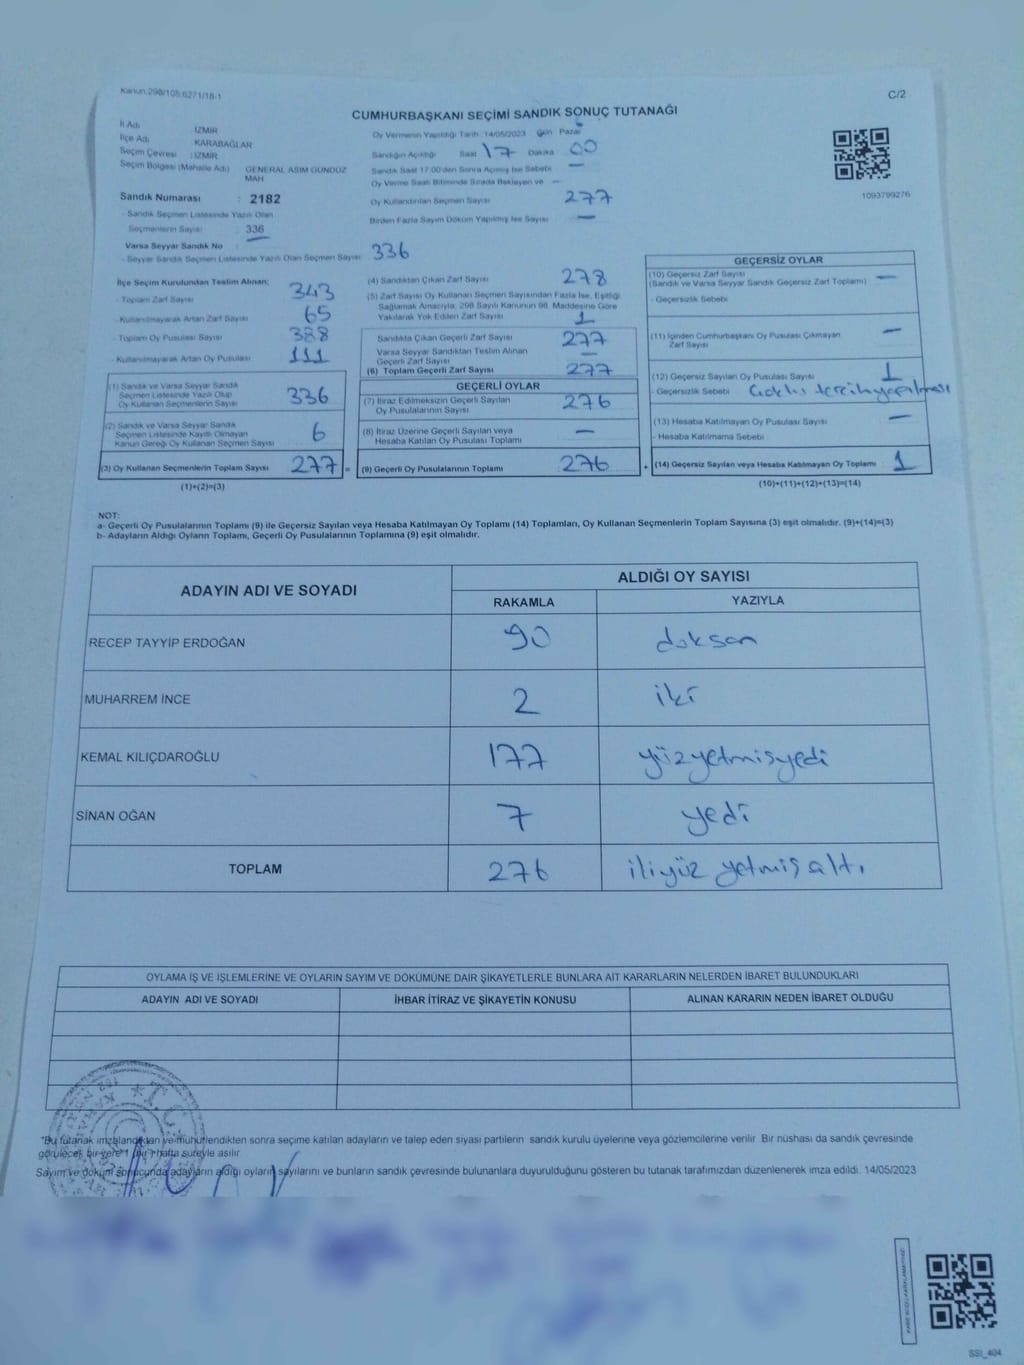 Kanun:298/105,6271/18-1
C/2
CUMHURBAŞKANI SEÇİMİ SANDIK SONUÇ TUTANAĞI
İl Adı : İZMİR
İlçe Adı : KARABAĞLAR
Seçim Çevresi : İZMİR
Seçim Bölgesi (Mahalle Adı) : GENERAL ASIM GÜNDÜZ MAH
Sandık Numarası : 2182
- Sandık Seçmen Listesinde Yazılı Olan
Seçmenlerin Sayısı : 336
Varsa Seyyar Sandık No :
- Seyyar Sandık Seçmen Listesinde Yazılı Olan Seçmen Sayısı 336
Oy Vermenin Yapıldığı Tarih 14/05/2023 Gün Pazar
Sandığın Açıldığı Saat 17 Dakika 00
Sandık Saat 17:00'den Sonra Açılmış İse Sebebi —
Oy Verme Saati Bitiminde Sırada Bekleyen ve —
Oy Kullandırılan Seçmen Sayısı 277
Birden Fazla Sayım Döküm Yapılmış İse Sayısı —
1093799276
İlçe Seçim Kurulundan Teslim Alınan;
- Toplam Zarf Sayısı 343
- Kullanılmayarak Artan Zarf Sayısı 65
- Toplam Oy Pusulası Sayısı 388
- Kullanılmayarak Artan Oy Pusulası 111
(1) Sandık ve Varsa Seyyar Sandık
Seçmen Listesinde Yazılı Olup
Oy Kullanan Seçmenlerin Sayısı 336
(2) Sandık ve Varsa Seyyar Sandık
Seçmen Listesinde Kayıtlı Olmayan
Kanun Gereği Oy Kullanan Seçmen Sayısı 6
(3) Oy Kullanan Seçmenlerin Toplam Sayısı 277 =
(1)+(2)=(3)
(4) Sandıktan Çıkan Zarf Sayısı 278
(5) Zarf Sayısı Oy Kullanan Seçmen Sayısından Fazla İse, Eşitliği
Sağlamak Amacıyla, 298 Sayılı Kanunun 98. Maddesine Göre
Yakılarak Yok Edilen Zarf Sayısı 1
Sandıkta Çıkan Geçerli Zarf Sayısı 277
Varsa Seyyar Sandıktan Teslim Alınan
Geçerli Zarf Sayısı —
(6) Toplam Geçerli Zarf Sayısı 277
GEÇERLİ OYLAR
(7) İtiraz Edilmeksizin Geçerli Sayılan
Oy Pusulalarının Sayısı 276
(8) İtiraz Üzerine Geçerli Sayılan veya
Hesaba Katılan Oy Pusulası Toplamı —
(9) Geçerli Oy Pusulalarının Toplamı 276 +
GEÇERSİZ OYLAR
(10) Geçersiz Zarf Sayısı —
(Sandık ve Varsa Seyyar Sandık Geçersiz Zarf Toplamı)
- Geçersizlik Sebebi
(11) İçinden Cumhurbaşkanı Oy Pusulası Çıkmayan
Zarf Sayısı —
(12) Geçersiz Sayılan Oy Pusulası Sayısı 1
- Geçersizlik Sebebi
(13) Hesaba Katılmayan Oy Pusulası Sayısı —
- Hesaba Katılmama Sebebi
(14) Geçersiz Sayılan veya Hesaba Katılmayan Oy Toplamı 1
(10)+(11)+(12)+(13)=(14)
NOT:
a- Geçerli Oy Pusulalarının Toplamı (9) ile Geçersiz Sayılan veya Hesaba Katılmayan Oy Toplamı (14) Toplamları, Oy Kullanan Seçmenlerin Toplam Sayısına (3) eşit olmalıdır. (9)+(14)=(3)
b- Adayların Aldığı Oyların Toplamı, Geçerli Oy Pusulalarının Toplamına (9) eşit olmalıdır.
ADAYIN ADI VE SOYADI ALDIĞI OY SAYISI
RAKAMLA YAZIYLA
RECEP TAYYİP ERDOĞAN 90 doksan
MUHARREM İNCE 2 iki
KEMAL KILIÇDAROĞLU 177 yüzyetmişyedi
SİNAN OĞAN 7 yedi
TOPLAM 276 ikiyüz yetmiş altı
OYLAMA İŞ VE İŞLEMLERİNE VE OYLARIN SAYIM VE DÖKÜMÜNE DAİR ŞİKAYETLERLE BUNLARA AİT KARARLARIN NELERDEN İBARET BULUNDUKLARI
ADAYIN ADI VE SOYADI İHBAR İTİRAZ VE ŞİKAYETİN KONUSU ALINAN KARARIN NEDEN İBARET OLDUĞU
"Bu tutanak imzalandıktan ve mühürlendikten sonra seçime katılan adayların ve talep eden siyasi partilerin sandık kurulu üyelerine veya gözlemcilerine verilir. Bir nüshası da sandık çevresinde
görülecek bir yere 1 (bir) hafta süreyle asılır.
Sayım ve döküm sonucunda adayların aldığı oyların sayılarını ve bunların sandık çevresinde bulunanlara duyurulduğunu gösteren bu tutanak tarafımızdan düzenlenerek imza edildi. 14/05/2023
SSI_404